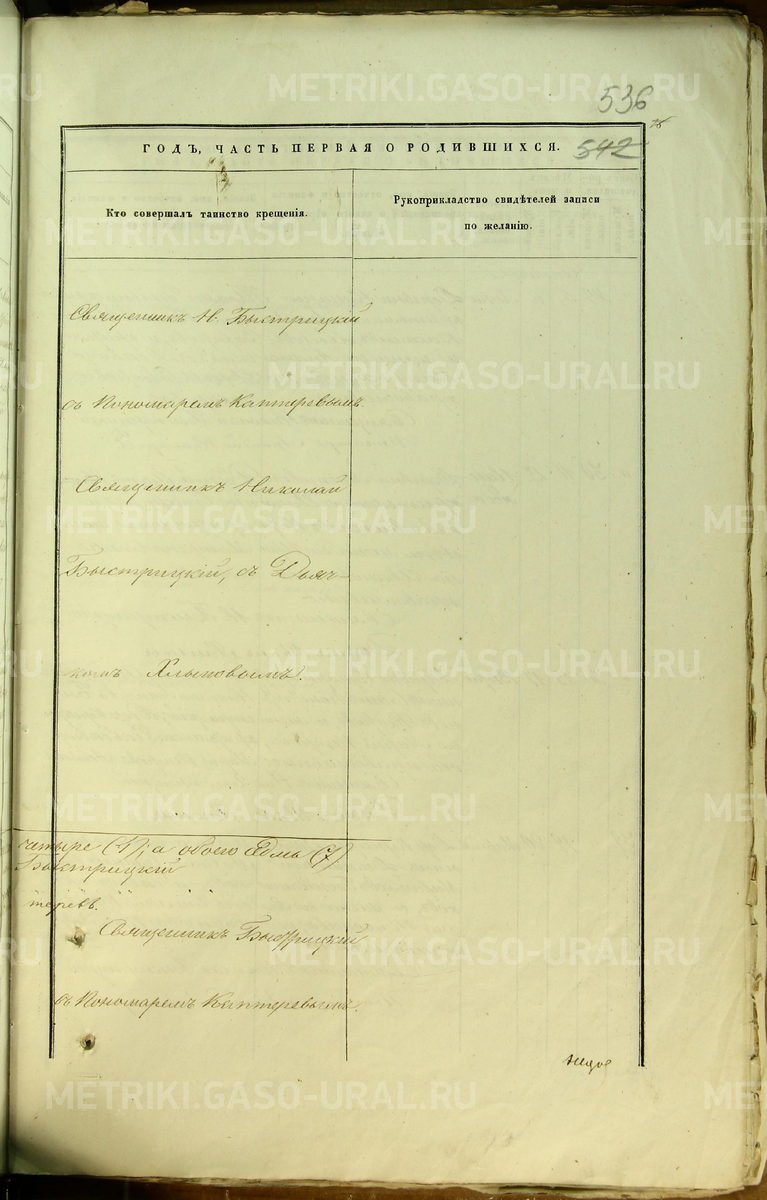 536
ГОДЪ, ЧАСТЬ ПЕРВАЯ О РОДИВШИХСЯ.
542
Кто совершалъ таинство крещенія.
Рукоприкладство свидѣтелей записи
по желанію.
Священникъ Н. Быстрицкій
съ Пономаремъ Каптеревымъ
Священникъ Николай
Быстрицкій, съ Дьяч-
комъ Хлыновымъ.
четыре (4), а обоего Едмь (7)
Быстрицкій
теревъ.
Священникъ Быстрицкій
съ Пономаремъ Каптеревымъ.
METRIKI.GASO-URAL.RU